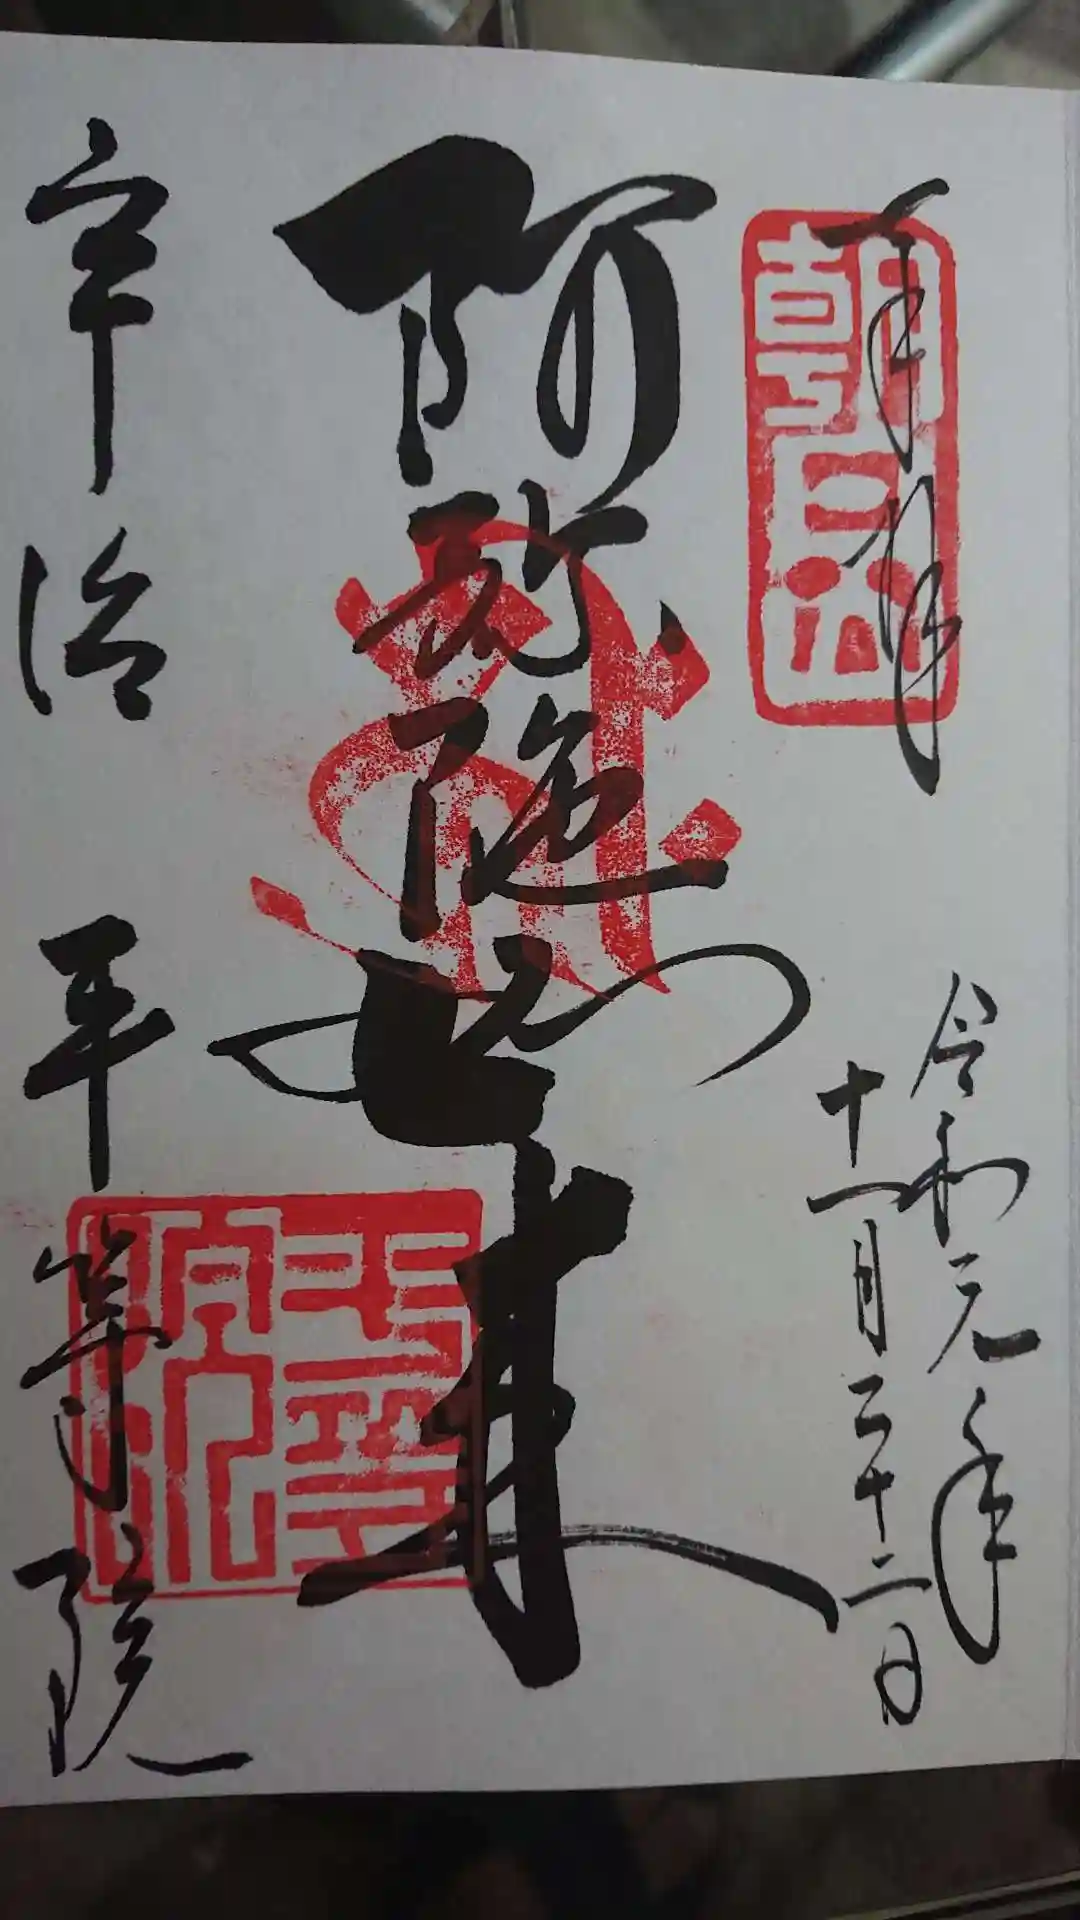 奉拝
朝日山
令和元年
十一月二十二日
阿弥陀如来
宇治 平等院
平等院